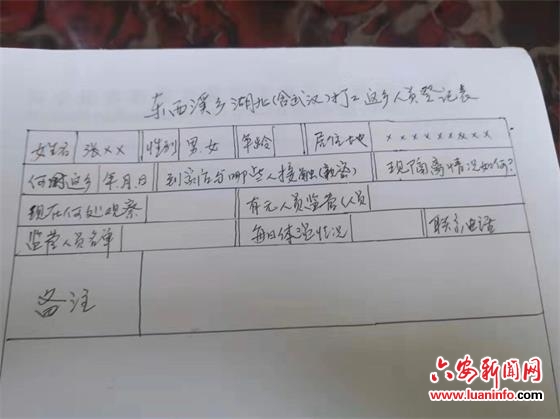 东西溪乡湖北(含武汉)打工返乡人员登记表
姓名 张×× 性别 男.女 年龄 居住地 ××××××××
何时返乡 年.月.日 到家后与哪些人接触(就餐) 现隔离情况如何?
现在何处观察 有无人员监管(人员
监管人员名单 每日体温情况 联系电话
备注
六安新闻网
www.luaninfo.com